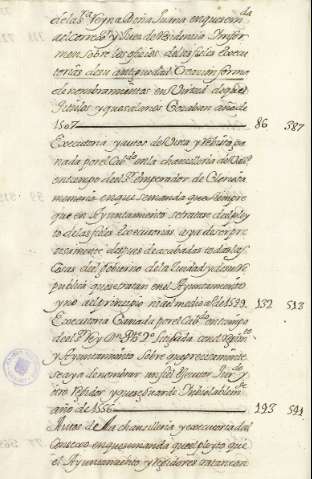 de la S.ª Reyna Doña Juana en que se m.da
al correx.or y Juez de Residencia Infor
men sobre los oficios de las fieles execu
torías de su antiguedad Creacion forma
de nombramientos en Virtud de que
Titulos y que salarios Gozaban año de
1507 86 587
Executoria y autos de Vista y revista ga
nada por el Cab.do en la chancilleria de
en tiempo de el S.r emperador de Gloriosa
memoria en que se manda que siempre
que en Ayuntamiento se tratare del pleyto
de las fieles executorias aya de ser pre
cisamente despues de acabadas todas las
Cosas del gobierno de la Ciudad y de su Re
publica que se tratan en el Ayuntamiento
y no al principio ni al medio año de 1539. 132 513
Executoria Ganada por el Cab.do en tiempo
de el S.r Rey D.n Ph.e 2.º litigada con
y Ayuntamiento Sobre que precisamente
se aya de nombrar un fiel Executor Jur.do
otro Regidor y que se guarde Inbiolablem.te
año de 1556 193 591
Autos de la chancilleria y executoria del
Consexo en que se manda que el pleyto que
el Ayuntamiento y Rexidores trataran con